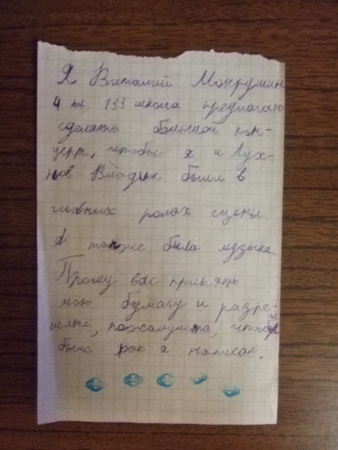 Я Виталий
4 кл 133 школа предлагаю
сделать большой кон-
церт, чтобы я и Лух-
нов Владик были в
главных ролях сцены
а также была музыка
Прошу вас принять
мою бумагу и разре-
шите, пожалуйста, чтобы
было как я написал.